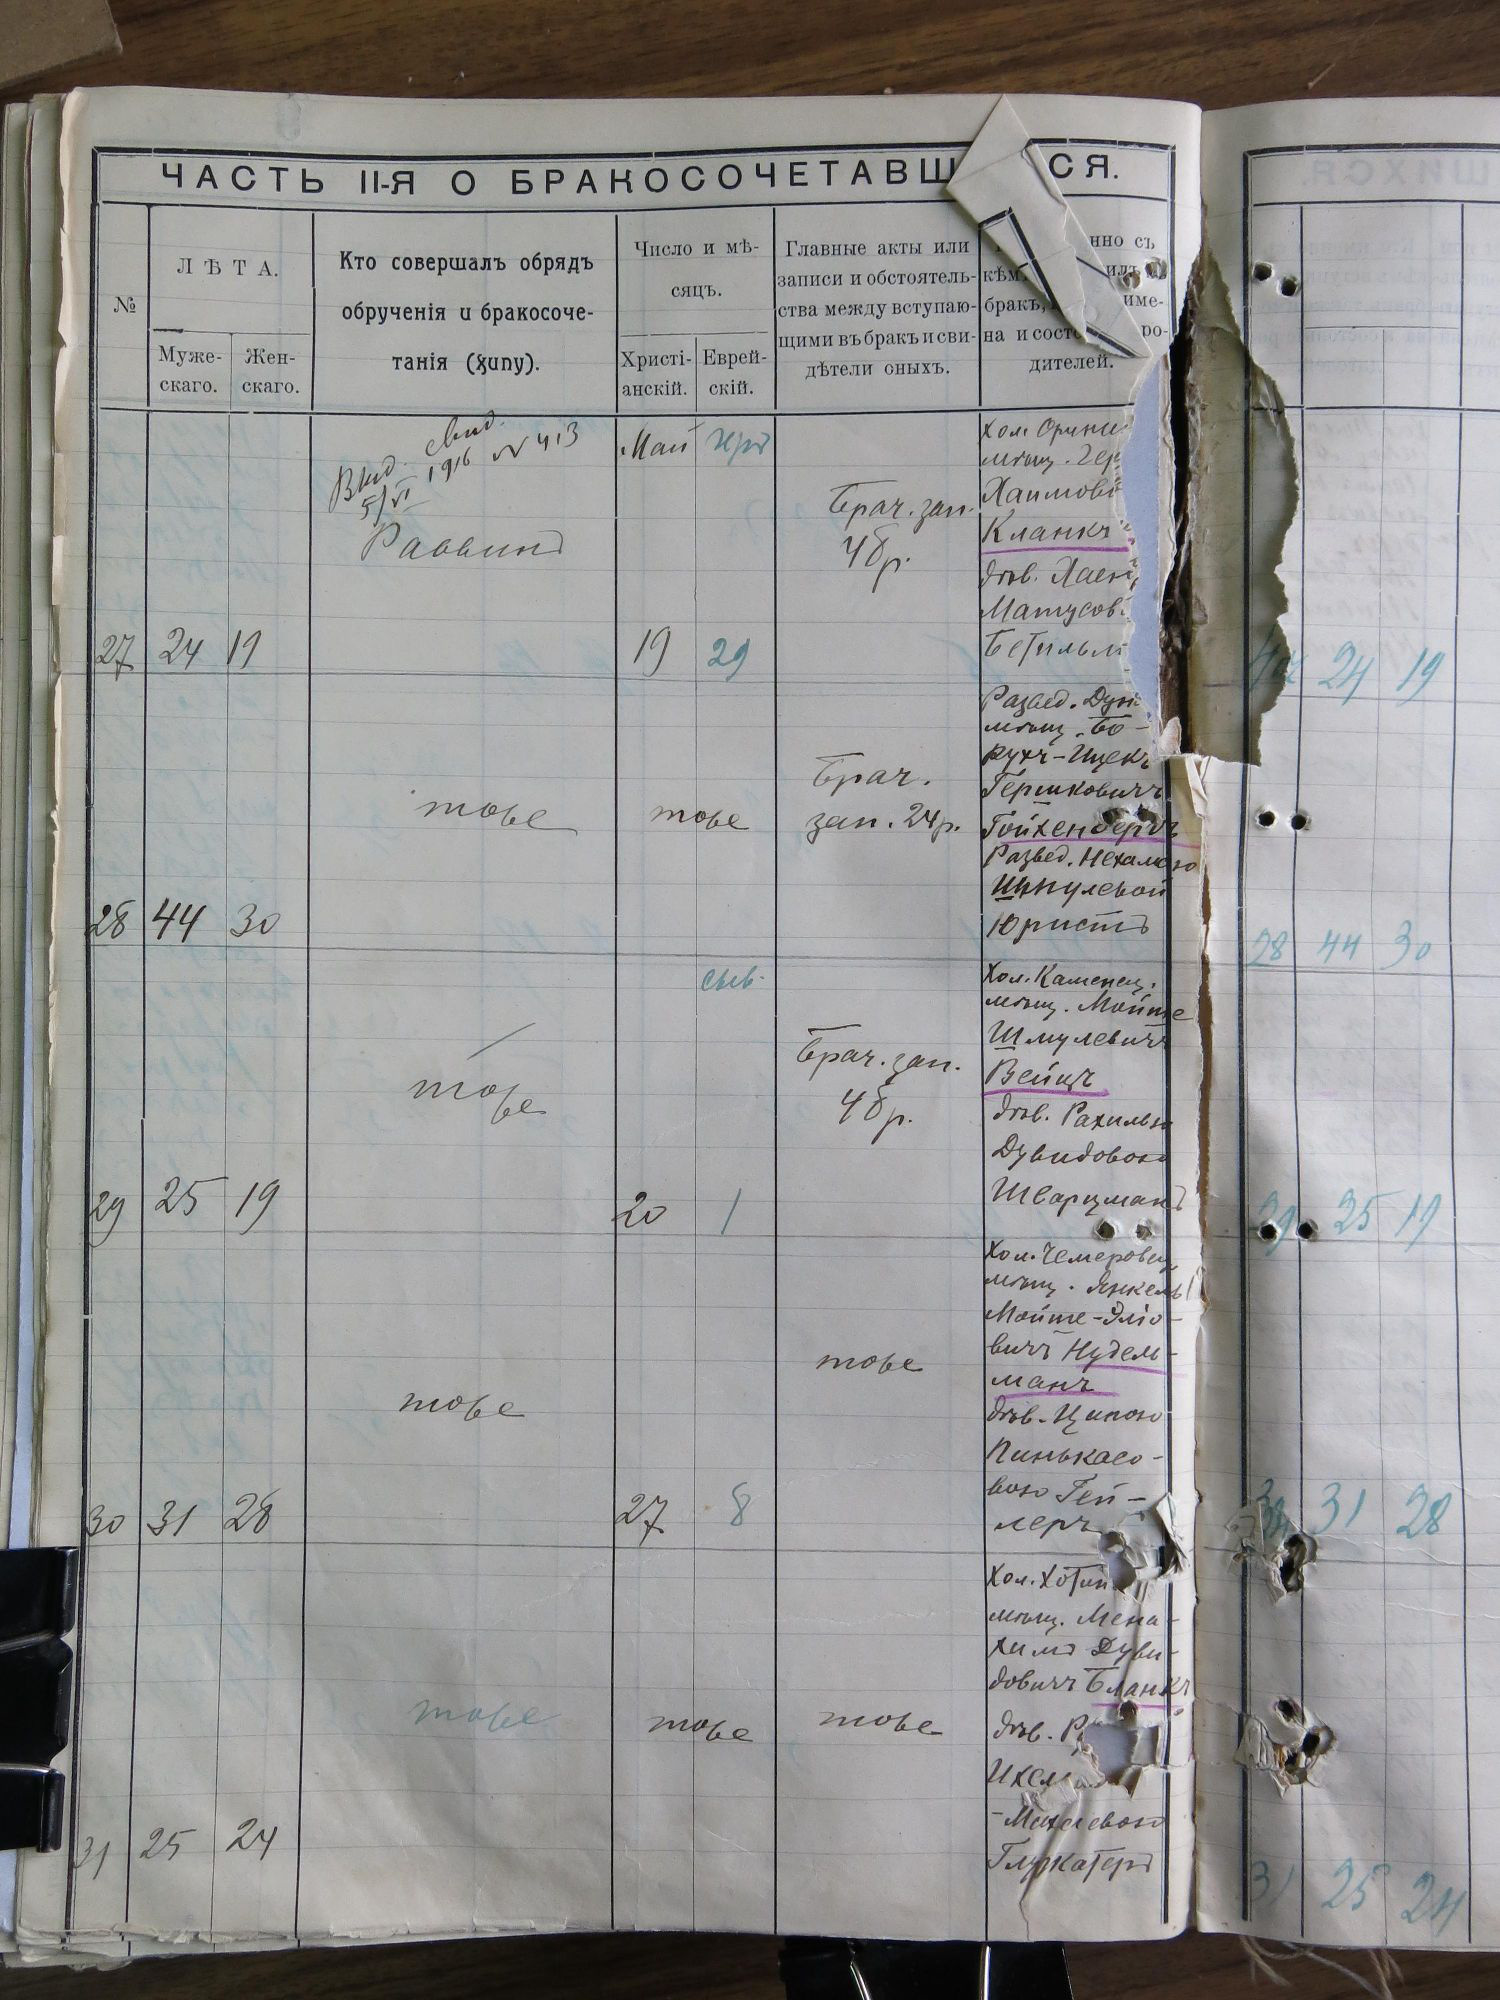 ЧАСТЬ II-Я О БРАКОСОЧЕТАВШ СЯ.
№
ЛѢТА.
Муже-
скаго.
Жен-
скаго.
Кто совершалъ обрядъ
обрученія и бракосоче-
танія (хупу).
Число и мѣ-
сяцъ.
Христі-
анскій.
Еврей-
скій.
Главные акты или
записи и обстоятель-
ства между вступаю-
щими въ бракъ и сви-
дѣтели оныхъ.
нно съ
кѣм
бракъ, име-
на и сост ро-
дителей.
27 24 19
Выд. свид.
5/VI 1916 № 413
Раввинъ
Май
19
29
Брач. зап.
48 р.
Хол.
мѣщ.
Хаимов
Кланкъ
дѣв.
Матусов
28 44 30
тоже
тоже
Брач.
зап. 24 р.
Развед. Дун
мѣщ. Бо-
рухъ-Ицекъ
Гершковичъ
Гойхенбергъ
Развед. Нехамою
Шмулевой
Юристъ
29 25 19
тоже
20
сив.
1
Брач. зап.
48 р.
Хол. Каменец.
мѣщ. Мойше
Шмулевичъ
Вейцъ
дѣв. Рахилью
Дувидовою
Шварцманъ
30 31 28
тоже
27
8
тоже
Хол. Чемеровец
мѣщ. Янкель
Мойше-Эліо-
вичъ Нудель-
манъ
дѣв. Ципою
Пинькасо-
вою Гей-
леръ
31 25 24
тоже
тоже
тоже
Хол. Хотин
мѣщ. Мена-
химъ Дуви-
довичъ Бланкъ
дѣв. Р
Ихел
-Мехелевою
Глузгатеръ
24 19
28 44 30
29 25 19
31 28
31 25 24